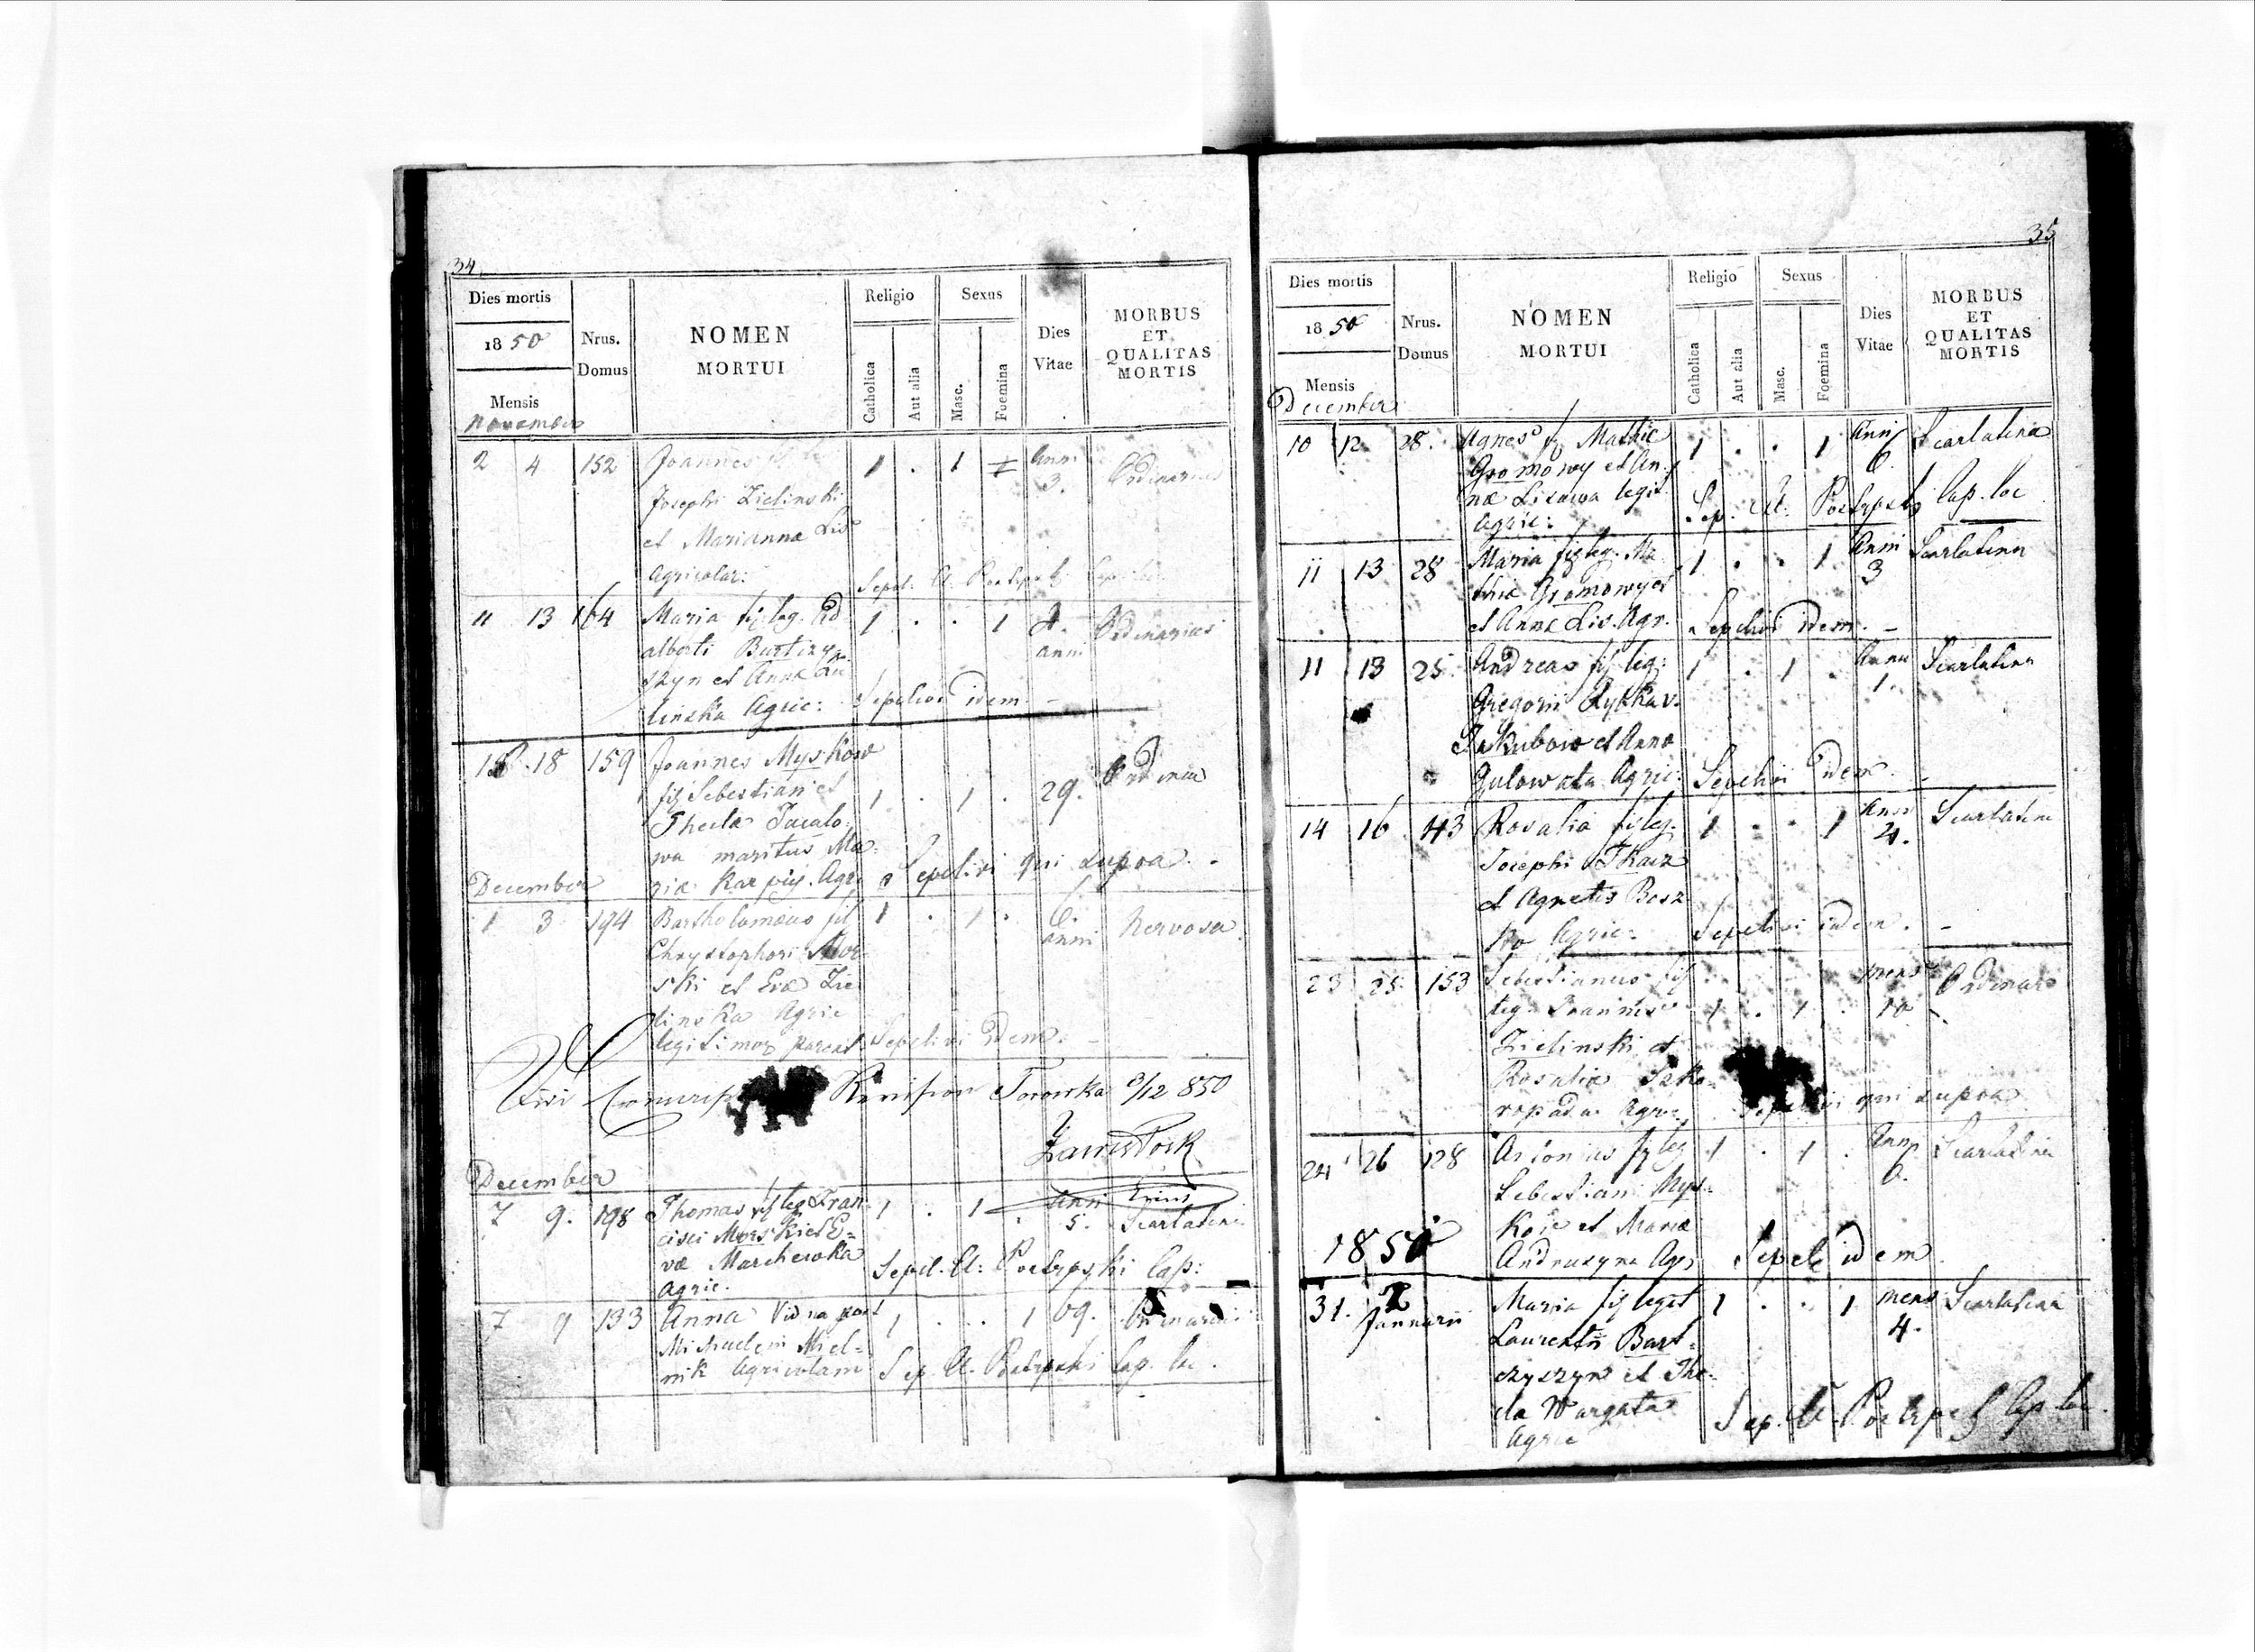 34
Dies mortis
1850
Mensis
November
Nrus.
Domus
NOMEN
MORTUI
Religio
Catholica
Aut alia
Sexus
Masc.
Foemina
Dies
Vitae
MORBUS
ET
QUALITAS
MORTIS
2 4 152 Joannes 1 . 1 Anni
3. Ordinarius
Josephi Zielinski
et Marianna Lis
Agricolar:
Sepel: A.
11 13 164 Maria fil leg. Ad 1 . . 1 anni Ordinarius
alberti Bartczy
szyn et Anna
linska Agric: Sepelivi idem. –
18 159 Joannes Myskow
fil Sebestiani et 1 . 1 . 29. Ordina
Theclæ
wa maritus Ma
riæ Karpiy. Agr. Sepelivi qui supra. .
December
1 3 194 Bartholomæus fil 1 . 1 . 6.
anni Nervosa
Chrystophori Mor
ski et Evæ Zie
linska Agric
legitimor parent Sepelivi idem. –
Revision 3/12 850
December
7 9. 198 Thomas fil leg Fran 1 . 1 . Anni
5. Scarlatina
cisci Morski et E=
væ Marchewka
Agric. Sepel. A: Postępski Cap:
7 9 133 Anna Vidua post 1 . . 1 69. Ordinaria
Michaelem Miel=
nik Agricolam Sep. A. Postępski Cap. loc.
35
Dies mortis
1850
Mensis
December
Nrus.
Domus
NOMEN
MORTUI
Religio
Catholica
Aut alia
Sexus
Masc.
Foemina
Dies
Vitae
MORBUS
ET
QUALITAS
MORTIS
10 12 28. Agnes f Mathiæ 1 . . 1 Anni
6. Scarlatina
Gromowy et An
næ Lisowa legit.
Agric: Sep. A: Postępski Cap. loc
11 13 28 Maria fil leg. Ma 1 . . 1 Anni
3 Scarlatina
thiæ Gromowy et
et Anna Lis. Agr. Sepelivi idem. –
11 13 25 Andreas fil leg: 1 . 1 . Anni
1. Scarlatina
Gregorii Rybka v.
Jakubow et Anna
Gulowata Agric: Sepelivi idem. –
14 16 43 Rosalia fil leg. 1 . . 1 Anni
4. Scarlatina
Josephi Tkacz
et Agnetis Bosz
ko Agric: Sepelivi idem. –
23 25 153 Sebestianus fil mens
10 Ordinar
leg. Joannis 1 . 1 .
Zielinski et
Rosaliæ
ropada Agric qui supra
24 26 128 fil leg 1 . 1 . Anni
6. Scarlatina
Sebestiani Mys=
kow et Mariæ
Andruszyna Agr. Sepel idem
1850
31. 2
Januarii Maria fil legit 1 . . 1 mens
4. Scarlatina
Laurentii Bart=
czyszyn et The=
cla Wargata
Agric Sep. A. Postępski Cap loc.